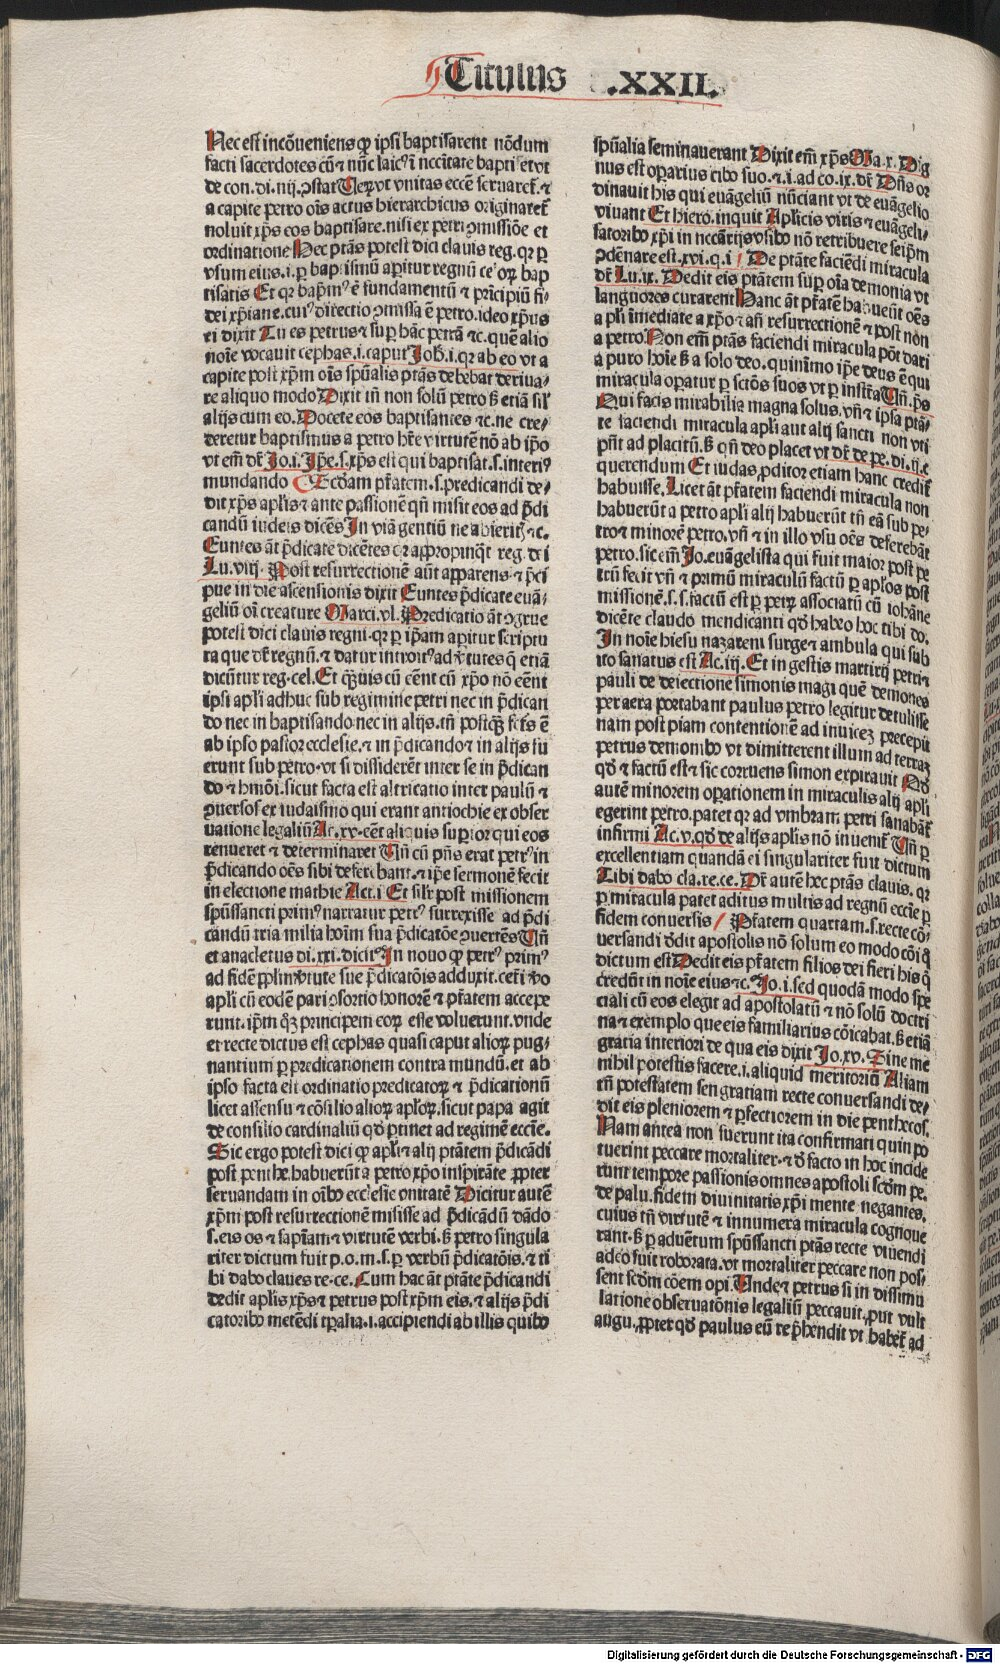 Titulus .XXII.
Nec est incōueniens ꝙ ipsi baptisarent nōdum
facti sacerdotes cū ⁊ nūc laicꝰ ī nccītate baptiset vt
de con. di. iiij. ꝯstat Terꝫ vt vnitas eccē seruaret̄. ⁊
a capite petro oīs actus hierarchicus originaret̄
noluit xp̄s eos baptisare. nisi ex petri ꝯmissiōe et
ordinatione Hec ptās potest dici clauis reg. qꝛ ꝑ
vsum eius. i. ꝑ baptismū aꝑitur regnū celoꝝ bap
tisatis Et qꝛ bap̄mꝰ ē fundamentū ⁊ prīcipiū fi⸗
dei xp̄iane. cuiꝰ directio ꝯmissa ē petro. ideo xp̄us
ei dixit Tu es petrus ⁊ suꝑ hāc petrā ⁊c. quē alio
noīe vocauit cephas. i. caput Joh̄. i. qꝛ ab eo vt a
capite post xp̄m oīs spūalis ptās debebat deriua⸗
re aliquo modo Dixit tn̄ non solū petro sꝫ etiā sil̓
alijs cum eo. Docete eos baptisantes ⁊c. ne cre⸗
deretur baptismus a petro hr̄e virtutē nō ab ip̄o
vt em̄ dr̄ Jo. i. Ip̄e. s. xp̄s est qui baptisat. s. interiꝰ
mundando Secōdam pt̄atem. s. predicandi de⸗
dit xp̄s aplīs ⁊ ante passionē qn̄ misit eos ad p̄di
candū iudeis dicēs In viā gentiū ne abieritis ⁊c.
Euntes āt p̄dicate dicētes qꝛ appropinq̄t reg. dei
Lu. viij. Post resurrectionē aūt apparens ⁊ p̄ci
pue in die ascensionis dixit Euntes p̄dicate euā⸗
geliū oī creature Marci. vl. Predicatio āt ꝯgrue
potest dici clauis regni. qꝛ ꝑ ip̄am aꝑitur scriptu
ra que dr̄ regnū. ⁊ datur introitꝰ ad v̄tutes q̄ etiā
dicūtur reg. cel. Et qꝫuis cū cēnt cū xp̄o nō eēnt
ipsi apl̄i adhuc sub regimine petri nec in p̄dican
do nec in baptisando nec in alijs. tn̄ postqꝫ fcts̄ ē
ab ipso pastor ecclesie. ⁊ in p̄dicando ⁊ in alijs fu
erunt sub petro. vt si dissiderēt inter se in p̄dican
do ⁊ hmōi. sicut facta est altricatio inter paulū ⁊
ꝯuersos ex iudaismo qui erant antiochie ex obser
uatione legaliū Ac. xv. eēt aliquis suꝑior qui eos
tenueret ⁊ determinaret Tn̄ cū pn̄s erat petrꝰ in
p̄dicando oēs sibi deferebant. ⁊ ip̄e sermonē fecit
in electione mathie Act. i Et sil̓r post missionem
spūssancti primꝰ narratur petrꝰ surrexisse ad p̄di
candū tria milia hoīm sua p̄dicatōe ꝯuertēs Tn̄
et anacletus di. xxi. dicit In nouo ꝙ petrꝰ primꝰ
ad fidē pp̄lm v̄tute sue p̄dicatōis adduxit. cet̄i v̓o
apl̄i cū eodē pari ꝯsortio honorē ⁊ pt̄atem accepe
runt. ip̄m qꝫ principem eoꝝ esse voluerunt. vnde
et recte dictus est cephas quasi caput alioꝝ pug⸗
nantium ꝑ predicationem contra mundū. et ab
ipso facta est ordinatio predicatoꝝ ⁊ p̄dicationū
licet assensu ⁊ cōsilio alioꝝ apl̄oꝝ. sicut papa agit
de consilio cardinaliū qd̄ ꝑtinet ad regimē eccīe.
Sic ergo potest dici ꝙ apl̄i ⁊ alij ptātem p̄dicādi
post penthe. habuerūt a petro xp̄o inspirāte ꝓpter
seruandam in oībꝰ ecclesie vnitatē Dicitur autē
xp̄m post resurrectionē misisse ad p̄dicādū dādo
.s. eis os ⁊ sapiam ⁊ virtutē verbi. sꝫ petro singula
riter dictum fuit p. o. m. s. ꝑ verbū p̄dicatōis. ⁊ ti
bi dabo claues re. ce. Cum hac āt ptāte p̄dicandi
dedit aplīs xp̄s ⁊ petrus post xp̄m eis. ⁊ alijs p̄di
catoribꝰ metēdi tꝑalia. i. accipiendi ab illis quibꝰ
spūalia seminauerant Dixit em̄ xp̄s Ma. x. Dig
nus est oꝑarius cibo suo. ⁊. i. ad co. ix. dr̄ Dn̄s or
dinauit his qui euāgeliū nūciant vt de euāgelio
viuant Et hiero. inquit Aplicis viris ⁊ euāgeli⸗
satoribꝰ xp̄i in nccārijs vsibꝰ nō retribuere seip̄m
ꝯdēnare est. xvi. q. i De ptāte faciēdi miracula
dr̄ Lu. ix. Dedit eis ptātem suꝑ oīa demonia vt
languores curarent Hanc āt pt̄atē habuerūt oēs
apl̄i īmediate a xp̄o ⁊ an̄ resurrectionē ⁊ post non
a petro. Non em̄ ptās faciendi miracula pōt dari
a puro hoīe sꝫ a solo deo. quinīmo ip̄e deus ē qui
miracula oꝑatur ꝑ sctōs suos vt ꝑ instr̄ta Tn̄. p̄s
Qui facis mirabilia magna solus. vn̄ ⁊ ipsa ptā⸗
te faciendi miracula apl̄i aut alij sancti non vti
pn̄t ad placitū. sꝫ qn̄ deo placet vt dr̄ de pe. di. ij. c
querendum Et iudas ꝓditor etiam hanc credit̄
habuisse. Licet āt pt̄atem faciendi miracula non
habuerūt a petro apl̄i alij habuerūt tn̄ eā sub pe⸗
tro ⁊ minorē petro. vn̄ ⁊ in illo vsu oēs deferebāt
petro. sic em̄ Jo. euāgelista qui fuit maior post pe
trū fecit vn̄ ⁊ primū miraculū factū ꝑ aplōs post
missionē. s. s. factū est ꝑ petꝝ associatū cū iohāne
dicēte claudo mendicanti qd̄ habeo hoc tibi do.
In noīe hiesu nazareni surge ⁊ ambula qui sub
ito sanatus est Ac. iij. Et in gestis martirij petri ⁊
pauli de deiectione simonis magi quē demones
per aera portabant paulus petro legitur detulisse
nam post piam contentionē ad inuicez precepit
petrus demonibꝰ vt dimitterent illum ad terraz
qd̄ ⁊ factū est ⁊ sic corruens simon expirauit Qd̄
autē minorem oꝑationem in miraculis alij apl̄i
egerint petro. patet qꝛ ad vmbram petri sanabāt̄
infirmi Ac. v. qd̄ de alijs aplīs nō inuenit̄ Tn̄ ꝑ
excellentiam quandā ei singulariter fuit dictum
Tibi dabo cla. re. ce. Dr̄ autē hec ptās clauis. qꝛ
ꝑ miracula patet aditus multis ad regnū eccīe ꝑ
fidem conuersis Pt̄atem quartam. s. recte cō⸗
uersandi d̄dit apostolis nō solum eo modo cōi q̄
dictum est Dedit eis pt̄atem filios dei fieri his q̄
credūt in noīe eius ⁊c. Jo. i. sed quodā modo spe
ciali cū eos elegit ad apostolatū ⁊ nō solū doctri
na ⁊ exemplo que eis familiarius cōicabat. sꝫ etiā
gratia interiori de qua eis dixit Jo. xv. Sine me
nihil potestis facere. i. aliquid meritoriū Aliam
tn̄ potestatem seu gratiam recte conuersandi de⸗
dit eis pleniorem ⁊ ꝑfectiorem in die penthecos.
Nam antea non fuerunt ita confirmati quin po
tuerint peccare mortaliter. ⁊ d̄ facto in hoc incide
runt tempore passionis omnes apostoli scd̄m pe.
de palu. fidem diuinitatis xp̄i mente negantes.
cuius tn̄ virtutē ⁊ innumera miracula cognoue
rant. sꝫ ꝑ aduētum spūssancti ptās recte viuendi
adeo fuit roborata. vt mortaliter peccare non pos⸗
sent scd̄m cōem opi. Unde ⁊ petrus si in dissimu
latione obseruatōnis legaliū peccauit, put vult
augu. ꝓpter qd̄ paulus eū rep̄hendit vt habet̄ ad
Digitalisierung gefördert durch die Deutsche Forschungsgemeinschaft - DFG